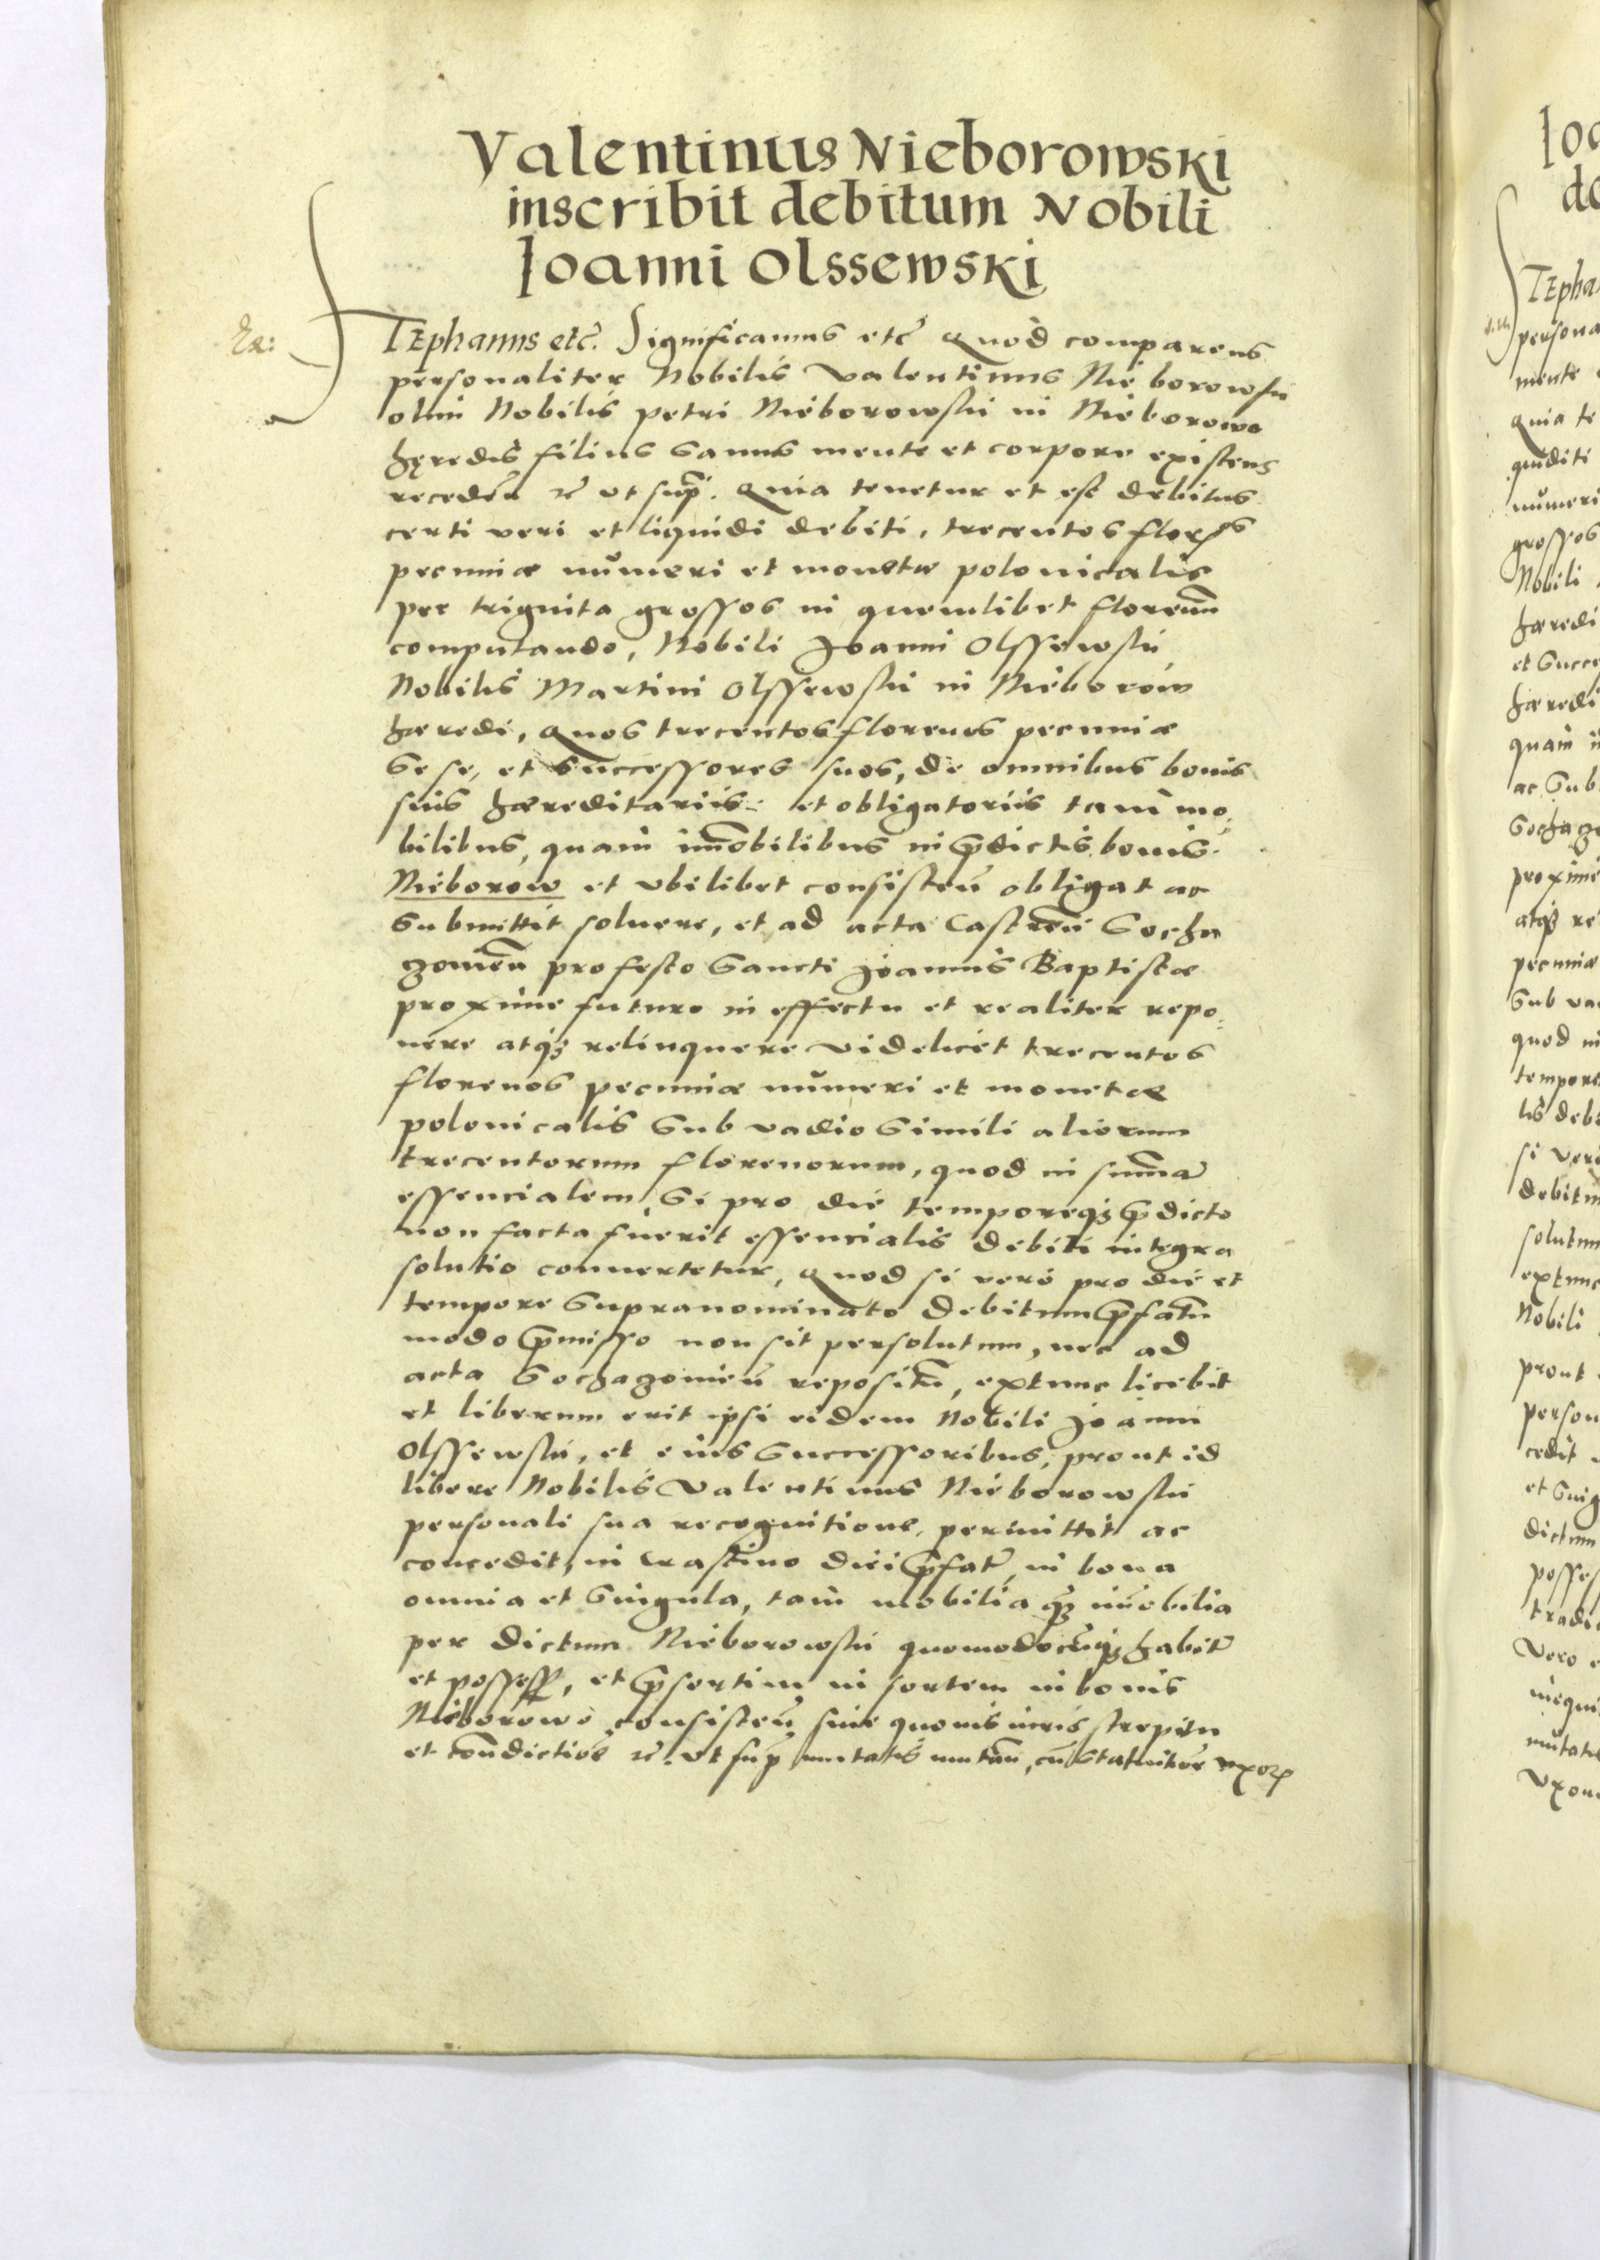 Valentinus Nieborowski
inscribit debitum Nobili
Ioanni Olssewski
STEphanus etc̄. Significamus etc̄ Quod comparens
personaliter Nobilis Valentinus Nieborowski
olim Nobilis petri Nieborowski in Nieborowo
hęredis filius sanus mente et corpore existens
recedeñ etc̄ vt supr̄. Quia tenetur et est debitus
certi veri et liquidi debiti, trecentos floren̄os
pecuniæ numeri et monetæ polonicalis
per triginta grossos in quemlibet florenū
computando, Nobili Joanni Olssewski
Nobilis Martini Olssewski in Nieborow
hæredi, Quos trecentos florenos pecuniæ
sese, et successores suos, de omnibus bonis
suis hæreditariis et obligatoriis tam mo-
bilibus, quam im̄obilibus in p̄dictis bonis
Nieborow et vbilibet consisteñ obligat ac
submittit soluere, et ad acta Castreñ Socha
zouieñ pro festo Sancti Joannis Baptistæ
proxime futuro in effectu et realiter repo-
nere atqꝫ relinquere videlicet trecentos
florenos pecuniæ numeri et monetæ
polonicalis sub vadio simili aliorum
trecentorum florenorum, quod in sum̄ā
essencialem, si pro die temporeqꝫ p̄dicto
non facta fuerit essencialis debiti integra
solutio conuertetur, Quod si vero pro die et
tempore supranominato debitum p̄fatū
modo p̄misso non sit persolutum, nec ad
acta Sochazouieñ repositū, extunc licebit
et liberum erit ipsi eidem Nobili Joanni
Olssewski, et eius successoribus, prout id
libere Nobilis Valentinus Nieborowski
personali sua recognitione permittit ac
concedit, in crastino diei p̄fat̄, in bona
omnia et singula, tam mobilia qꝫ im̄obilia
per dictum Nieborowski quomodocūqꝫ habit̄
et possess̄, et p̄sertim in sortem in bonis
Nieborowo consisteñ sine quouis iuris strepitu
et con̄dictioē etc̄. vt supr̄ mutatis mutañ, cū